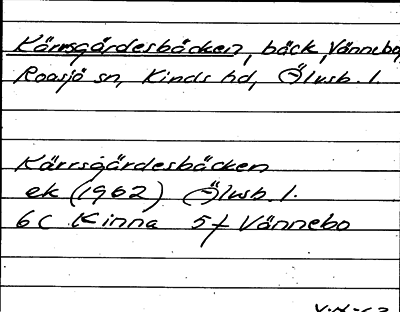 Kärrsgårdesbäcken, bäck, Vännebo,
Roasjö sn, Kinds hd, Älvsb. l.
Kärrsgårdesbäcken
ek (1962) Älvsb. l.
6C Kinna 5f Vännebo